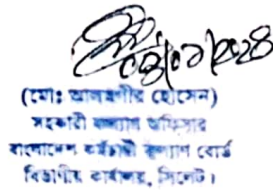 ০৪/০৯/২০২৪
(মোঃ আলমগীর হোসেন)
সহকারী কল্যাণ অফিসার
বাংলাদেশ কর্মচারী কল্যাণ বোর্ড
বিভাগীয় কার্যালয়, সিলেট।